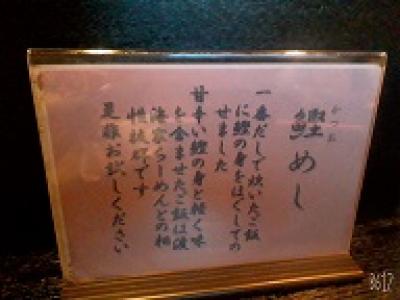 かつお
鰹めし
一番だしで炊いたご飯
に鰹の身をほぐしての
せました
甘辛い鰹の身と軽く味
を含ませたご飯は波
海家らーめんとの相
性抜群です
是非お試しください
8617